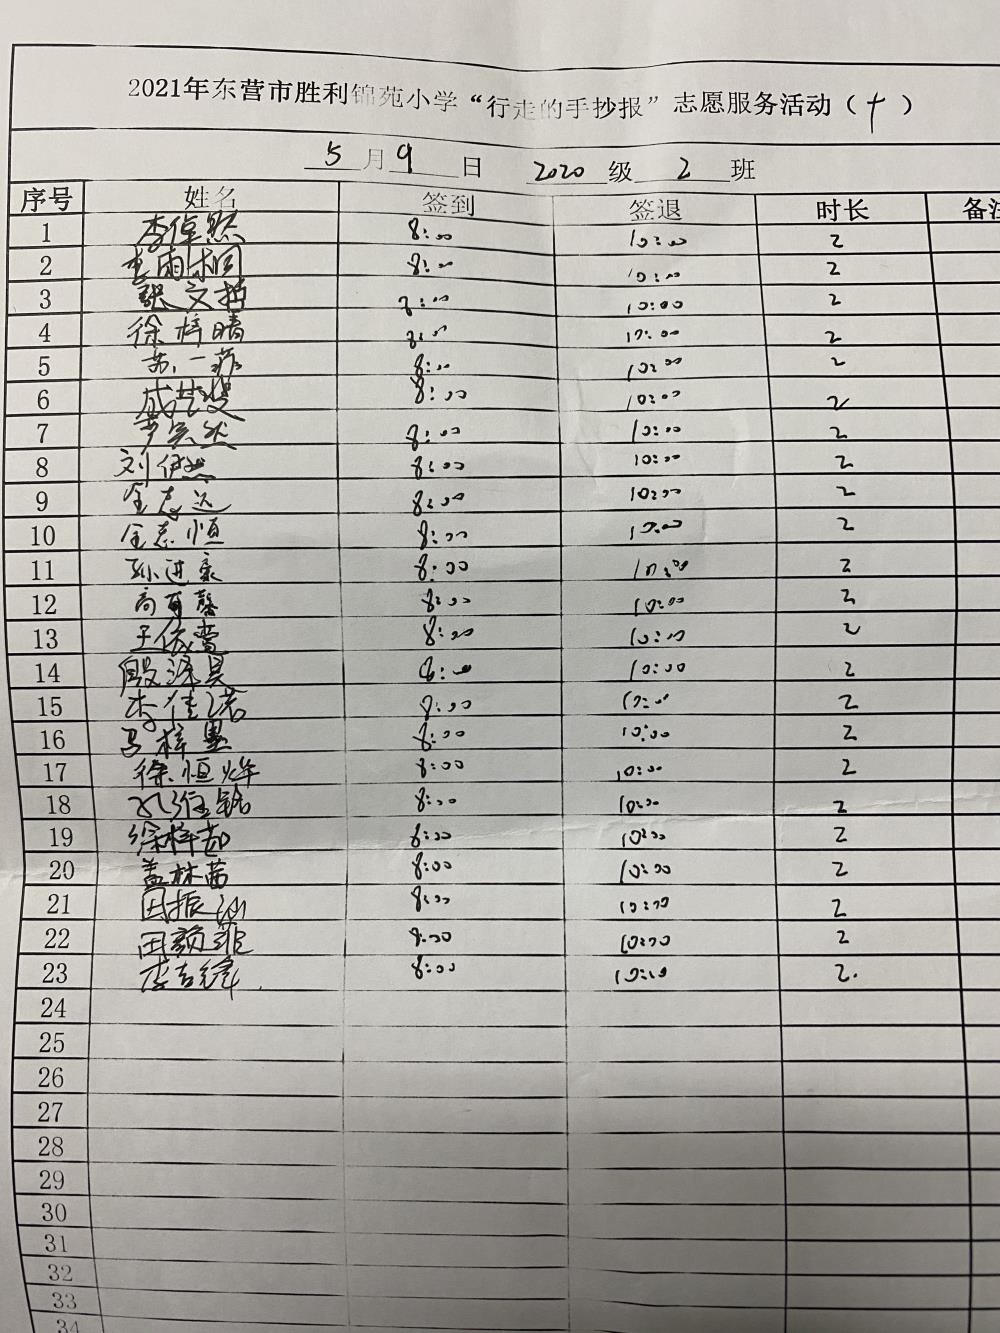 2021年东营市胜利锦苑小学“行走的手抄报”志愿服务活动（十）
5月9日 2020级2班
序号 姓名 签到 签退 时长 备注
1 李倬然 8:00 10:00 2
2 雨桐 8:00 10:00 2
3 文哲 8:00 10:00 2
4 徐梓晴 8:00 10:00 2
5 苏一菲 8:00 10:00 2
6 8:00 10:00 2
7 8:00 10:00 2
8 刘伊然 8:00 10:00 2
9 全志远 8:00 10:00 2
10 全志恒 8:00 10:00 2
11 孙进家 8:00 10:00 2
12 馨 8:00 10:00 2
13 王依 8:00 10:00 2
14 殷 8:00 10:00 2
15 李佳诺 8:00 10:00 2
16 马梓墨 8:00 10:00 2
17 徐恒烨 8:00 10:00 2
18 8:00 10:00 2
19 徐梓茹 8:00 10:00 2
20 盖林茜 8:00 10:00 2
21 田振 8:00 10:00 2
22 田颜菲 8:00 10:00 2
23 李吉锋 8:00 10:00 2.
24
25
26
27
28
29
30
31
32
33
34